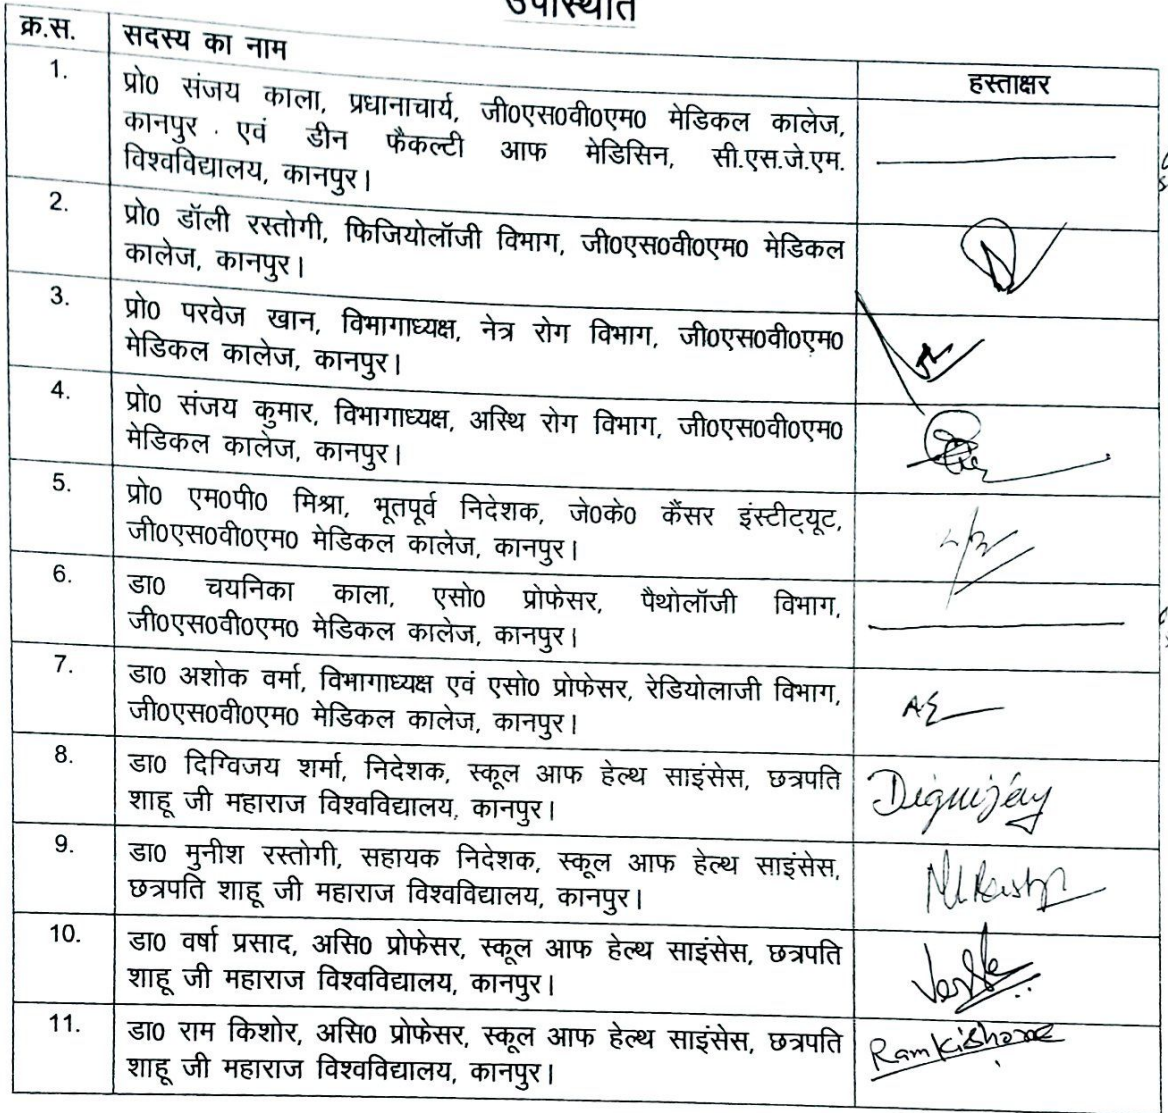 उपस्थिति
क्र.स. सदस्य का नाम
हस्ताक्षर
1. प्रो0 संजय काला, प्रधानाचार्य, जी0एस0वी0एम0 मेडिकल कालेज,
कानपुर एवं डीन फैकल्टी आफ मेडिसिन, सी.एस.जे.एम.
विश्वविद्यालय, कानपुर।
2. प्रो0 डॉली रस्तोगी, फिजियोलॉजी विभाग, जी0एस0वी0एम0 मेडिकल
कालेज, कानपुर।
3. प्रो0 परवेज खान, विभागाध्यक्ष, नेत्र रोग विभाग, जी0एस0वी0एम0
मेडिकल कालेज, कानपुर।
4. प्रो0 संजय कुमार, विभागाध्यक्ष, अस्थि रोग विभाग, जी0एस0वी0एम0
मेडिकल कालेज, कानपुर।
5. प्रो0 एम0पी0 मिश्रा, भूतपूर्व निदेशक, जे0के0 कैंसर इंस्टीट्यूट,
जी0एस0वी0एम0 मेडिकल कालेज, कानपुर।
6. डा0 चयनिका काला, एसो0 प्रोफेसर, पैथोलॉजी विभाग,
जी0एस0वी0एम0 मेडिकल कालेज, कानपुर।
7. डा0 अशोक वर्मा, विभागाध्यक्ष एवं एसो0 प्रोफेसर, रेडियोलाजी विभाग,
जी0एस0वी0एम0 मेडिकल कालेज, कानपुर।
8. डा0 दिग्विजय शर्मा, निदेशक, स्कूल आफ हेल्थ साइंसेस, छत्रपति
शाहू जी महाराज विश्वविद्यालय, कानपुर।
Digvijay
9. डा0 मुनीश रस्तोगी, सहायक निदेशक, स्कूल आफ हेल्थ साइंसेस,
छत्रपति शाहू जी महाराज विश्वविद्यालय, कानपुर।
10. डा0 वर्षा प्रसाद, असि0 प्रोफेसर, स्कूल आफ हेल्थ साइंसेस, छत्रपति
शाहू जी महाराज विश्वविद्यालय, कानपुर।
11. डा0 राम किशोर, असि0 प्रोफेसर, स्कूल आफ हेल्थ साइंसेस, छत्रपति
शाहू जी महाराज विश्वविद्यालय, कानपुर।
Ram Kishore